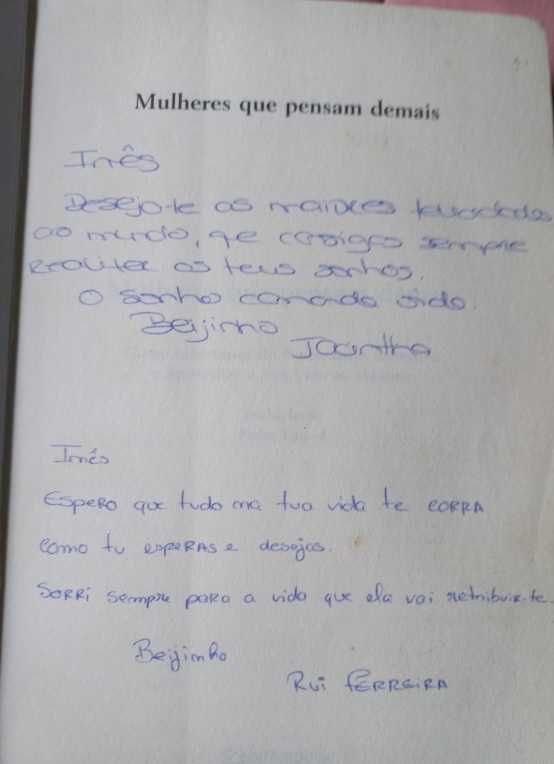 Mulheres que pensam demais
Inês
Desejo-te as maiores felicidades
do mundo, que consigas sempre
realizar os teus sonhos.
O sonho comanda vida.
Beijinho
Jacintha
Inês
Espero que tudo na tua vida te corra
como tu esperas e desejas.
Sorri sempre para a vida que ela vai retribuir-te.
Beijinho
Rui Ferreira